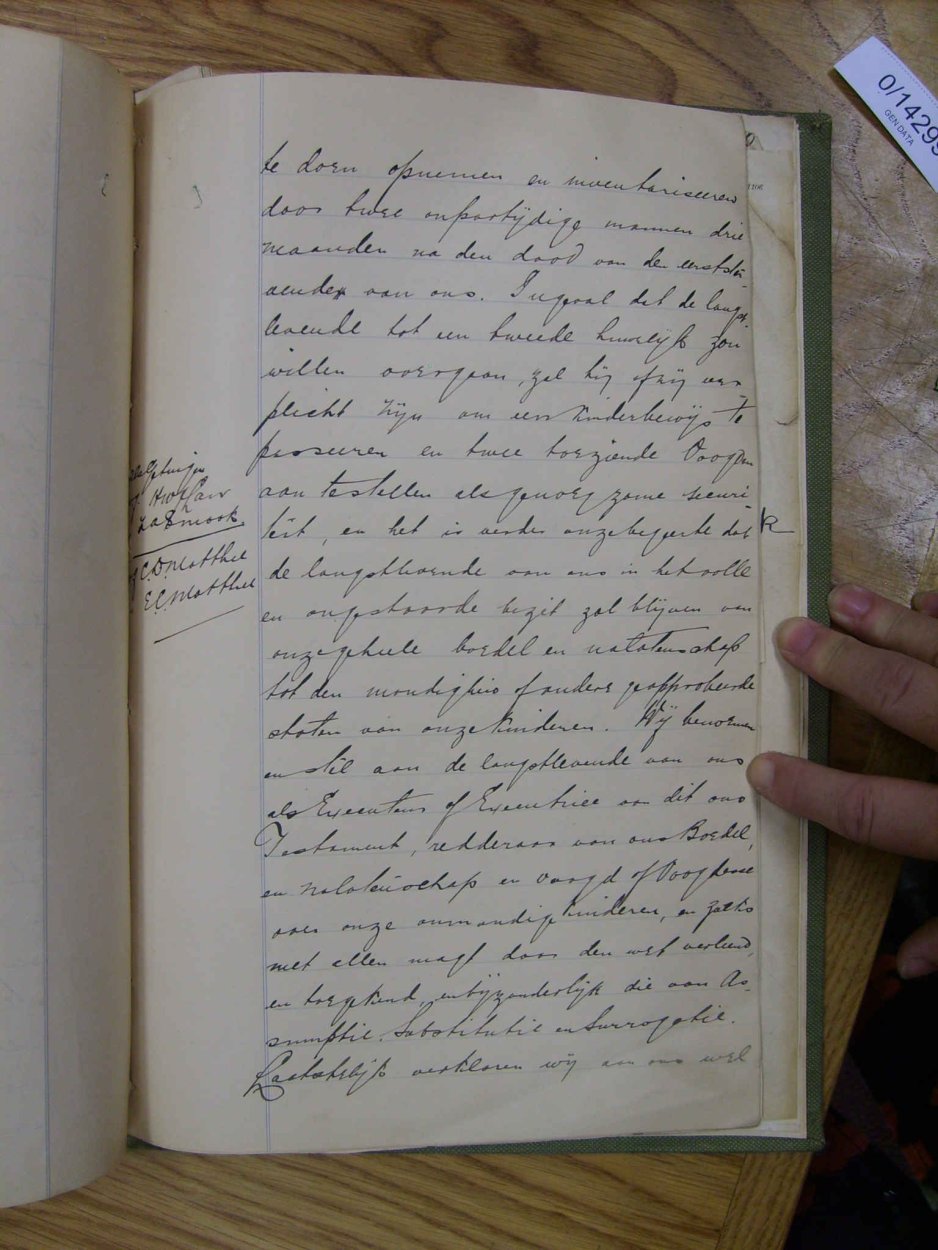 te doen opnemen en inventariseeren
door twee onpartijdige mannen drie
maanden na den dood van de eerstster-
vende van ons. Ingeval dat de langst-
levende tot een tweede huwelijk zou
willen overgaan, zal hij of zij ver
plicht zijn om een Kinderbewijs te
passeeren en twee toeziende Voogden
aan testellen als genoegzame securi
teit, en het is verder onze begeerte dat
de langstlevende van ons in het volle
en ongestoorde bezit zal blijven van
onze geheele boedel en nalatenschap
tot den mondigheid of andere geapprobeerde
staten van onze Kinderen. Wij benoemen
en stel aan de langstlevende van ons
als Executeur of Executrice van dit ons
Testament, redderaar van ons Boedel,
en nalatenschap en voogd of Voogdesse
over onze onmondige Kinderen, en zulks
met allen magt door den wet verleend,
en toegekend, en bijzonderlijk die van As-
sumptie, Substitutie en Surrogatie.
Laatstelijk verklaren wij aan ons wel
als Getuigen
C.D. Matthee
E.C. Matthee
R
0/14299
GEN DATA